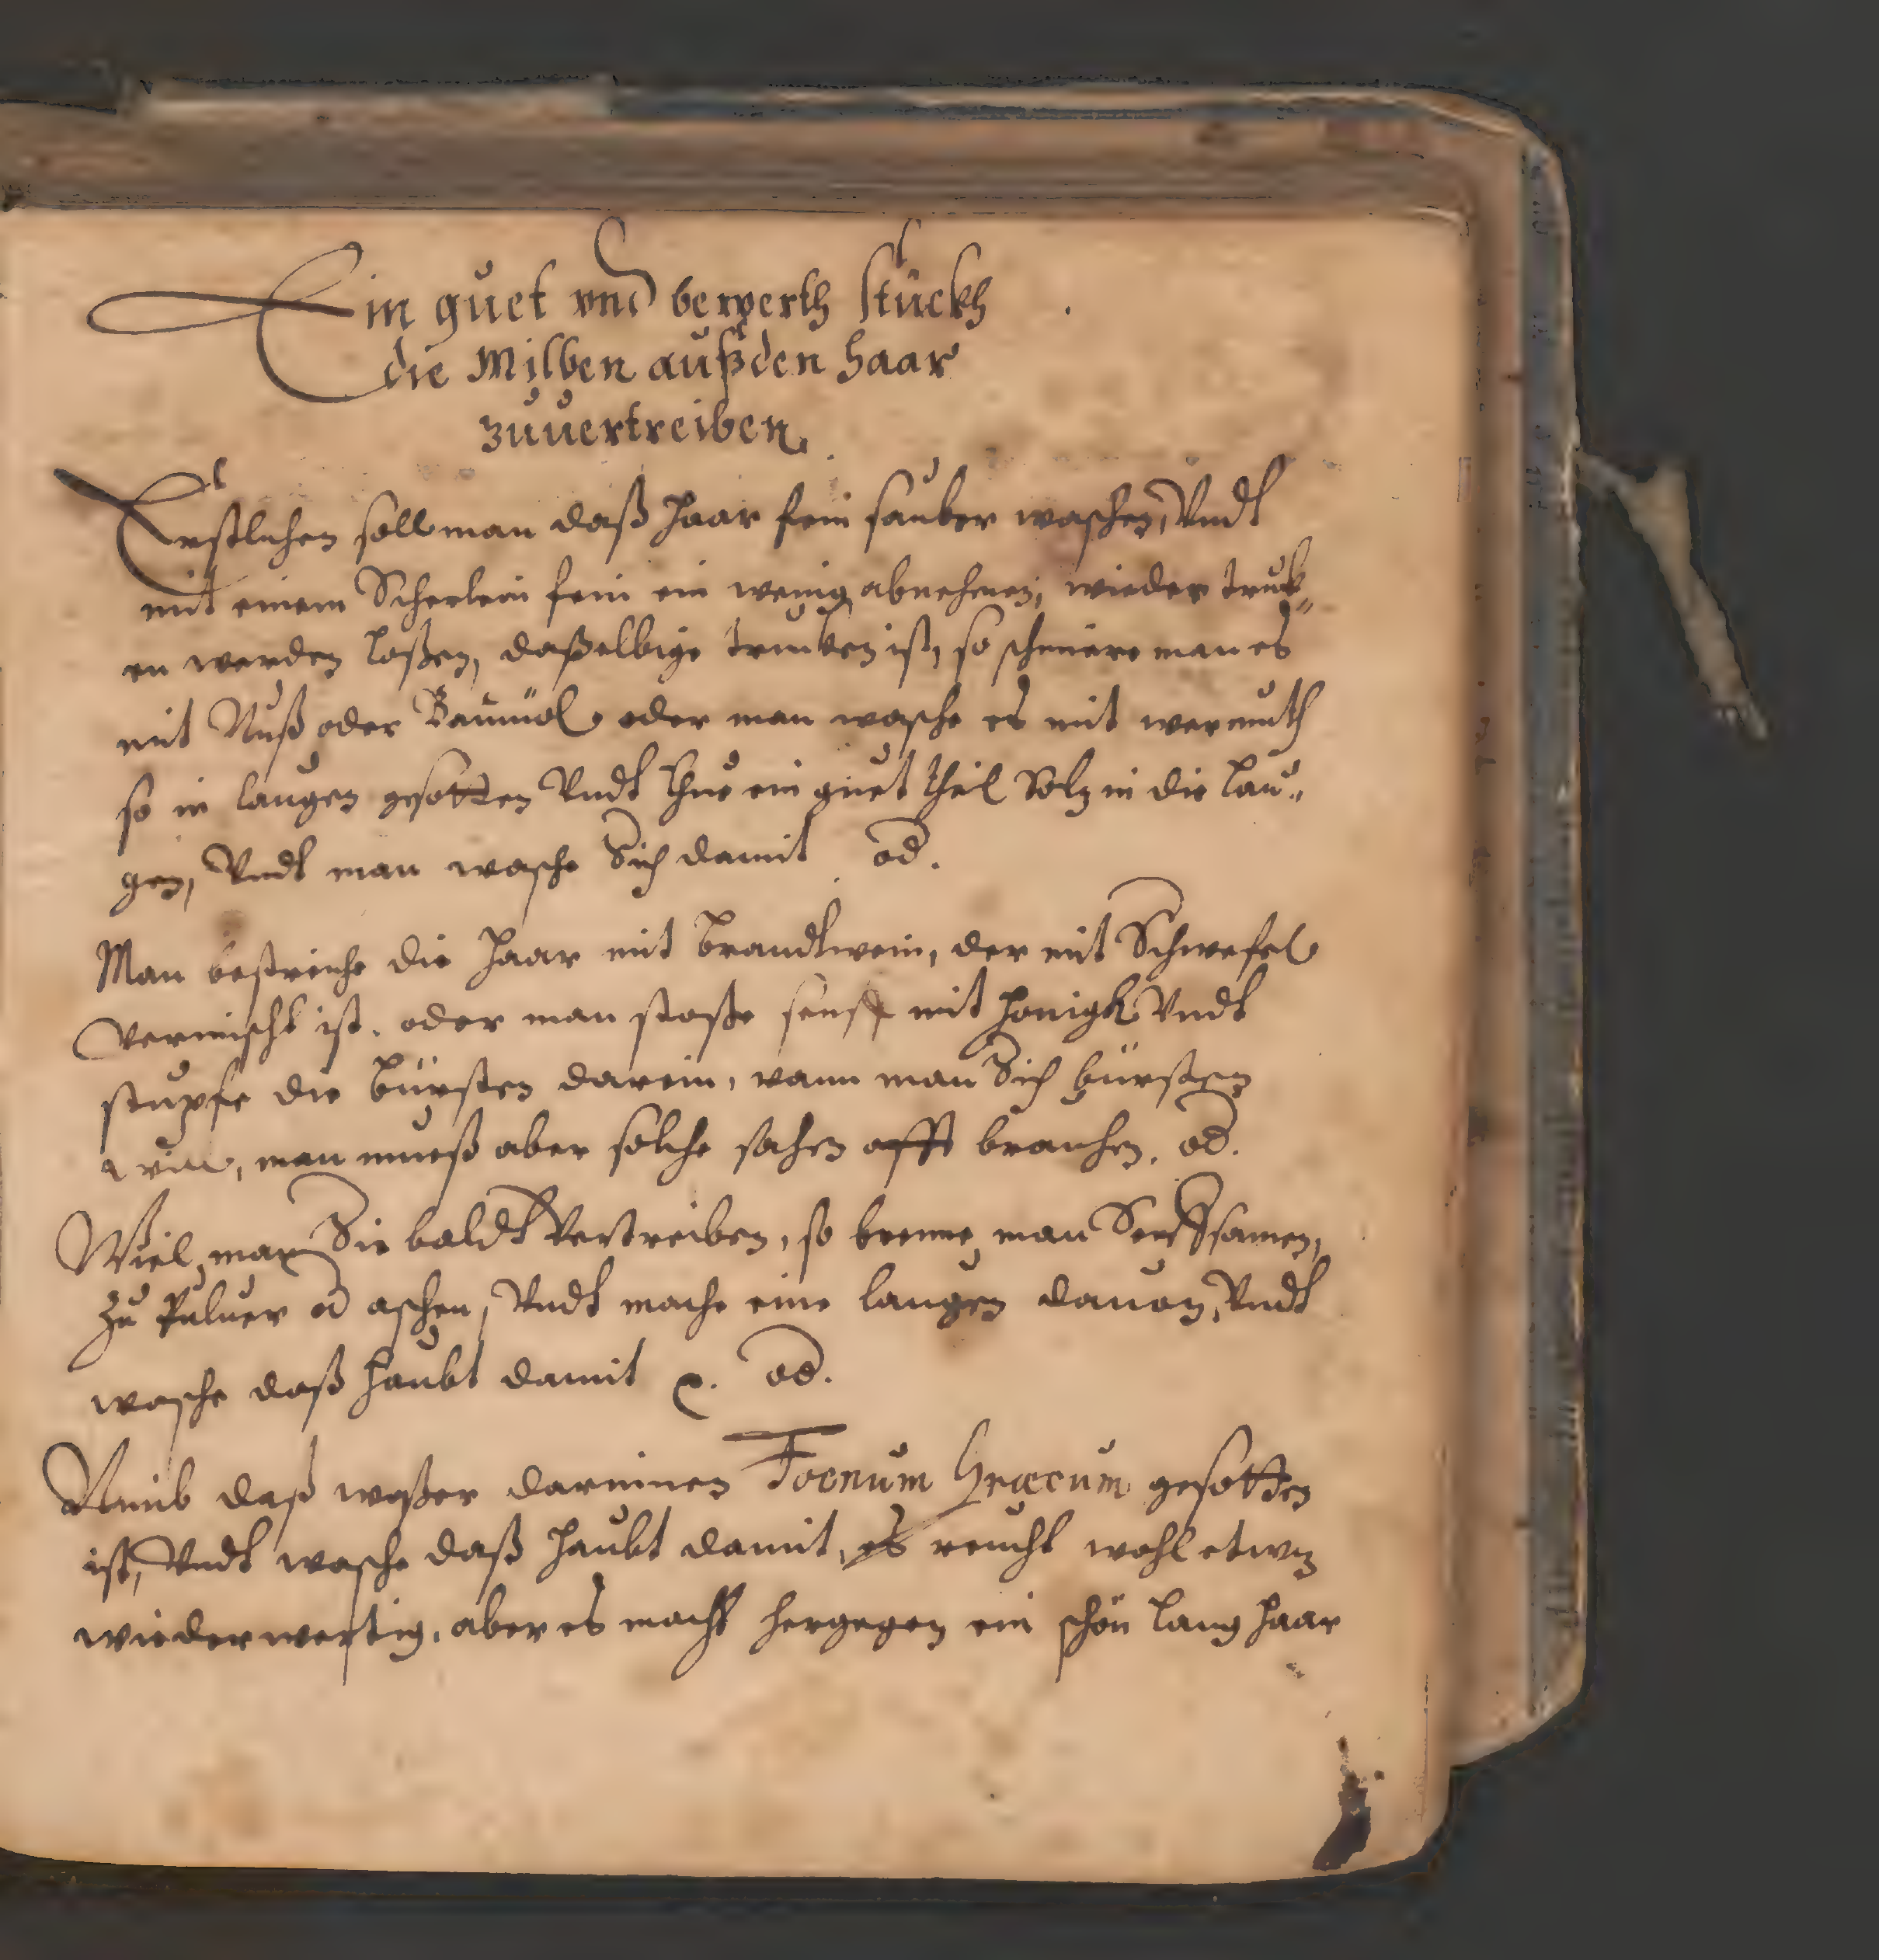 Ein guet vnd bewerth stuckh
die Milben außden Haar
zuuertreiben.
Erstlichen soll man daß haar fein sauber waschen, Vndt
mit einem Scherlein fein ein wenig abnehmen, wieder truk„
en werden laßen, daßelbige truken ist, so schmiere man es
mit Nuß oder Baumöl oder man wasche es mit wermuth
so in laugen gesotten Vndt thue ein guet theil Salz in die lau„
gen, Vndt man wasche Sich damit od.
Man bestreiche die haar mit brandtwein, der mit Schwefel
vermischt ist. oder man stoße senff mit honigk Vndt
stupfe die bürsten darein, wann man Sich bürsten
will, man mueß aber solche sachen offt brauchen. od.
Wiel man Sie baldt Vertreiben, so brenne man Senffsamen,
zu Puluer od aschen, Vndt mache eine laugen dauon, Vndt
wasche daß haubt damit etc. od.
Nimb daß waßer darinnen Foenum Graecum gesotten
ist, Vndt wasche daß haubt damit, es reucht wohl etwz
wiederwertig, aber es macht hergegen ein schön lang haar